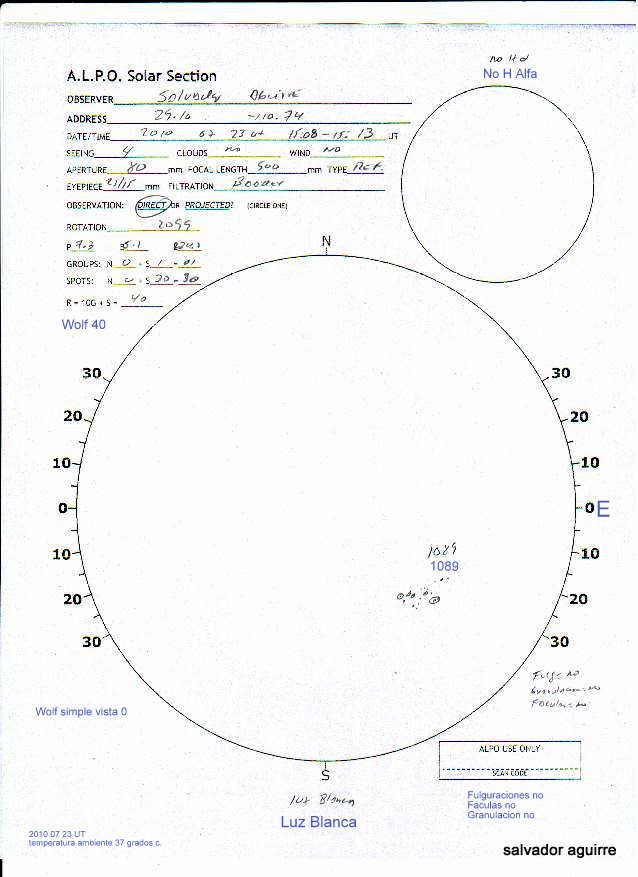 no H α
No H Alfa
A.L.P.O. Solar Section
OBSERVER Salvador Aguirre
ADDRESS 29.10 -110.74
DATE/TIME 2010 07 23 UT 15:08-15:13 UT
SEEING 4 CLOUDS no WIND NO
APERTURE 80 mm FOCAL LENGTH 500 mm TYPE REF.
EYEPIECE mm FILTRATION Baader
OBSERVATION: DIRECT OR PROJECTED? (CIRCLE ONE)
ROTATION 2099
P 7.3 B 5.1
GROUPS: N 0 - S 1 - 01
SPOTS: N 0 - S 30 - 30
R = 10G + S = 40
Wolf 40
N
30 30
20 20
10 10
0 0 E
10 10
20 20
30 30
1089
1089
Fulg= no
Granulacion= no
Faculas= no
Wolf simple vista 0
S
ALPO USE ONLY
SCAN CODE
Luz Blanca
Luz Blanca
Fulguraciones no
Faculas no
Granulacion no
2010 07 23 UT
temperatura ambiente 37 grados c.
salvador aguirre